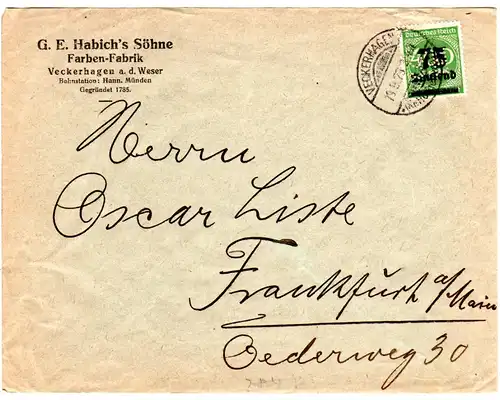 G. E. Habich's Söhne
Farben-Fabrik
Veckerhagen a. d. Weser
Bahnstation: Hann. Münden
Gegründet 1785.
VECKERHAGEN
Deutsches Reich
75
Tausend
Herrn
Oscar Liste
Frankfurt a/Main
Oederweg 30